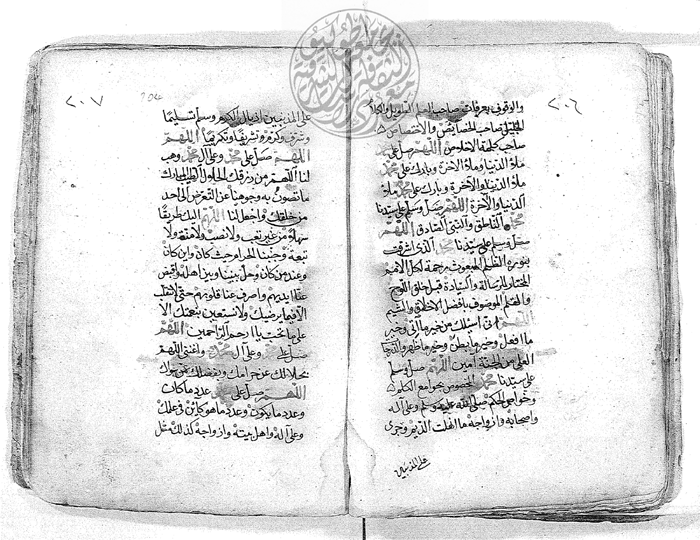 ٢٠٦
والوقوف بعرفات صاحب العلم الطويل والكلام
الجليل صاحب الخصائص والاختصاص
صاحب كلمة الاخلاص اللهم صل على محمد
ملأ الدنيا وملأ الاخرة وبارك على محمد
ملأ الدنيا والآخرة وبارك على محمد ملأ
الدنيا والآخرة اللهم صل وسلم على سيدنا
محمد الناطق والنبي الصادق اللهم
صل وسلم على سيدنا محمد الذي اشرقت
بنوره الظلم المبعوث رحمة لكل الامم
المختار للرسالة والسيادة قبل خلق اللوح
والقلم الموصوف بافضل الاخلاق والشيم
اللهم اني اسئلك من خير ما آتي وخير
ما افعل وخير ما بطن وخير ما ظهر والدرجات
العلى من الجنة آمين اللهم صل وسلم
على سيدنا محمد المخصوص بجوامع الكلم
وخواص الحكم صلى الله عليه وسلم وعلى آله
واصحابه وازواجه ما انهلت الديم وجرى
على المذنبين
٢٠٧
على المذنبين اذيال الكرم وسلم تسليما
وشرف وكرم تشريفا وتكريما اللهم
اللهم صل على محمد وعلى آل محمد وهب
لنا اللهم من رزقك الحلال الطيب المبارك
ما تصون به وجوهنا عن التعرض الى احد
من خلقك واجعل لنا اللهم اليه طريقا
سهلا من غير تعب ولا نصب ولا منة ولا
تبعة وجنبنا الحرام حيث كان واين كان
وعند من كان وحل بيننا وبين اهله واقبض
عنا ايديهم واصرف عنا قلوبهم حتى لا نتقلب
الا فيما يرضيك ولا نستعين بنعمتك الا
على ما تحب يا ارحم الراحمين اللهم
صل على محمد وعلى آل محمد واغنني اللهم
بحلالك عن حرامك وبفضلك عمن سواك
اللهم صل على محمد عدد ما كان
وعدد ما يكون وعدد ما هو كائن في علمك
وعلى آله واهل بيته وازواجه كذلك مثل